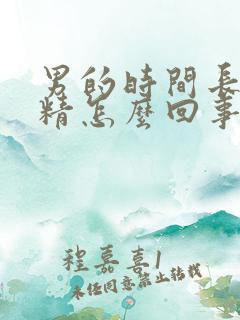 男的時間長
精怎麼回事
程嘉喜1
未经同意禁止转载